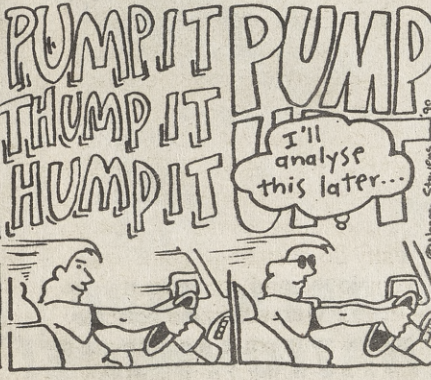 PUMP IT
THUMP IT
HUMP IT
PUMP
I'll
analyse
this later...
'90